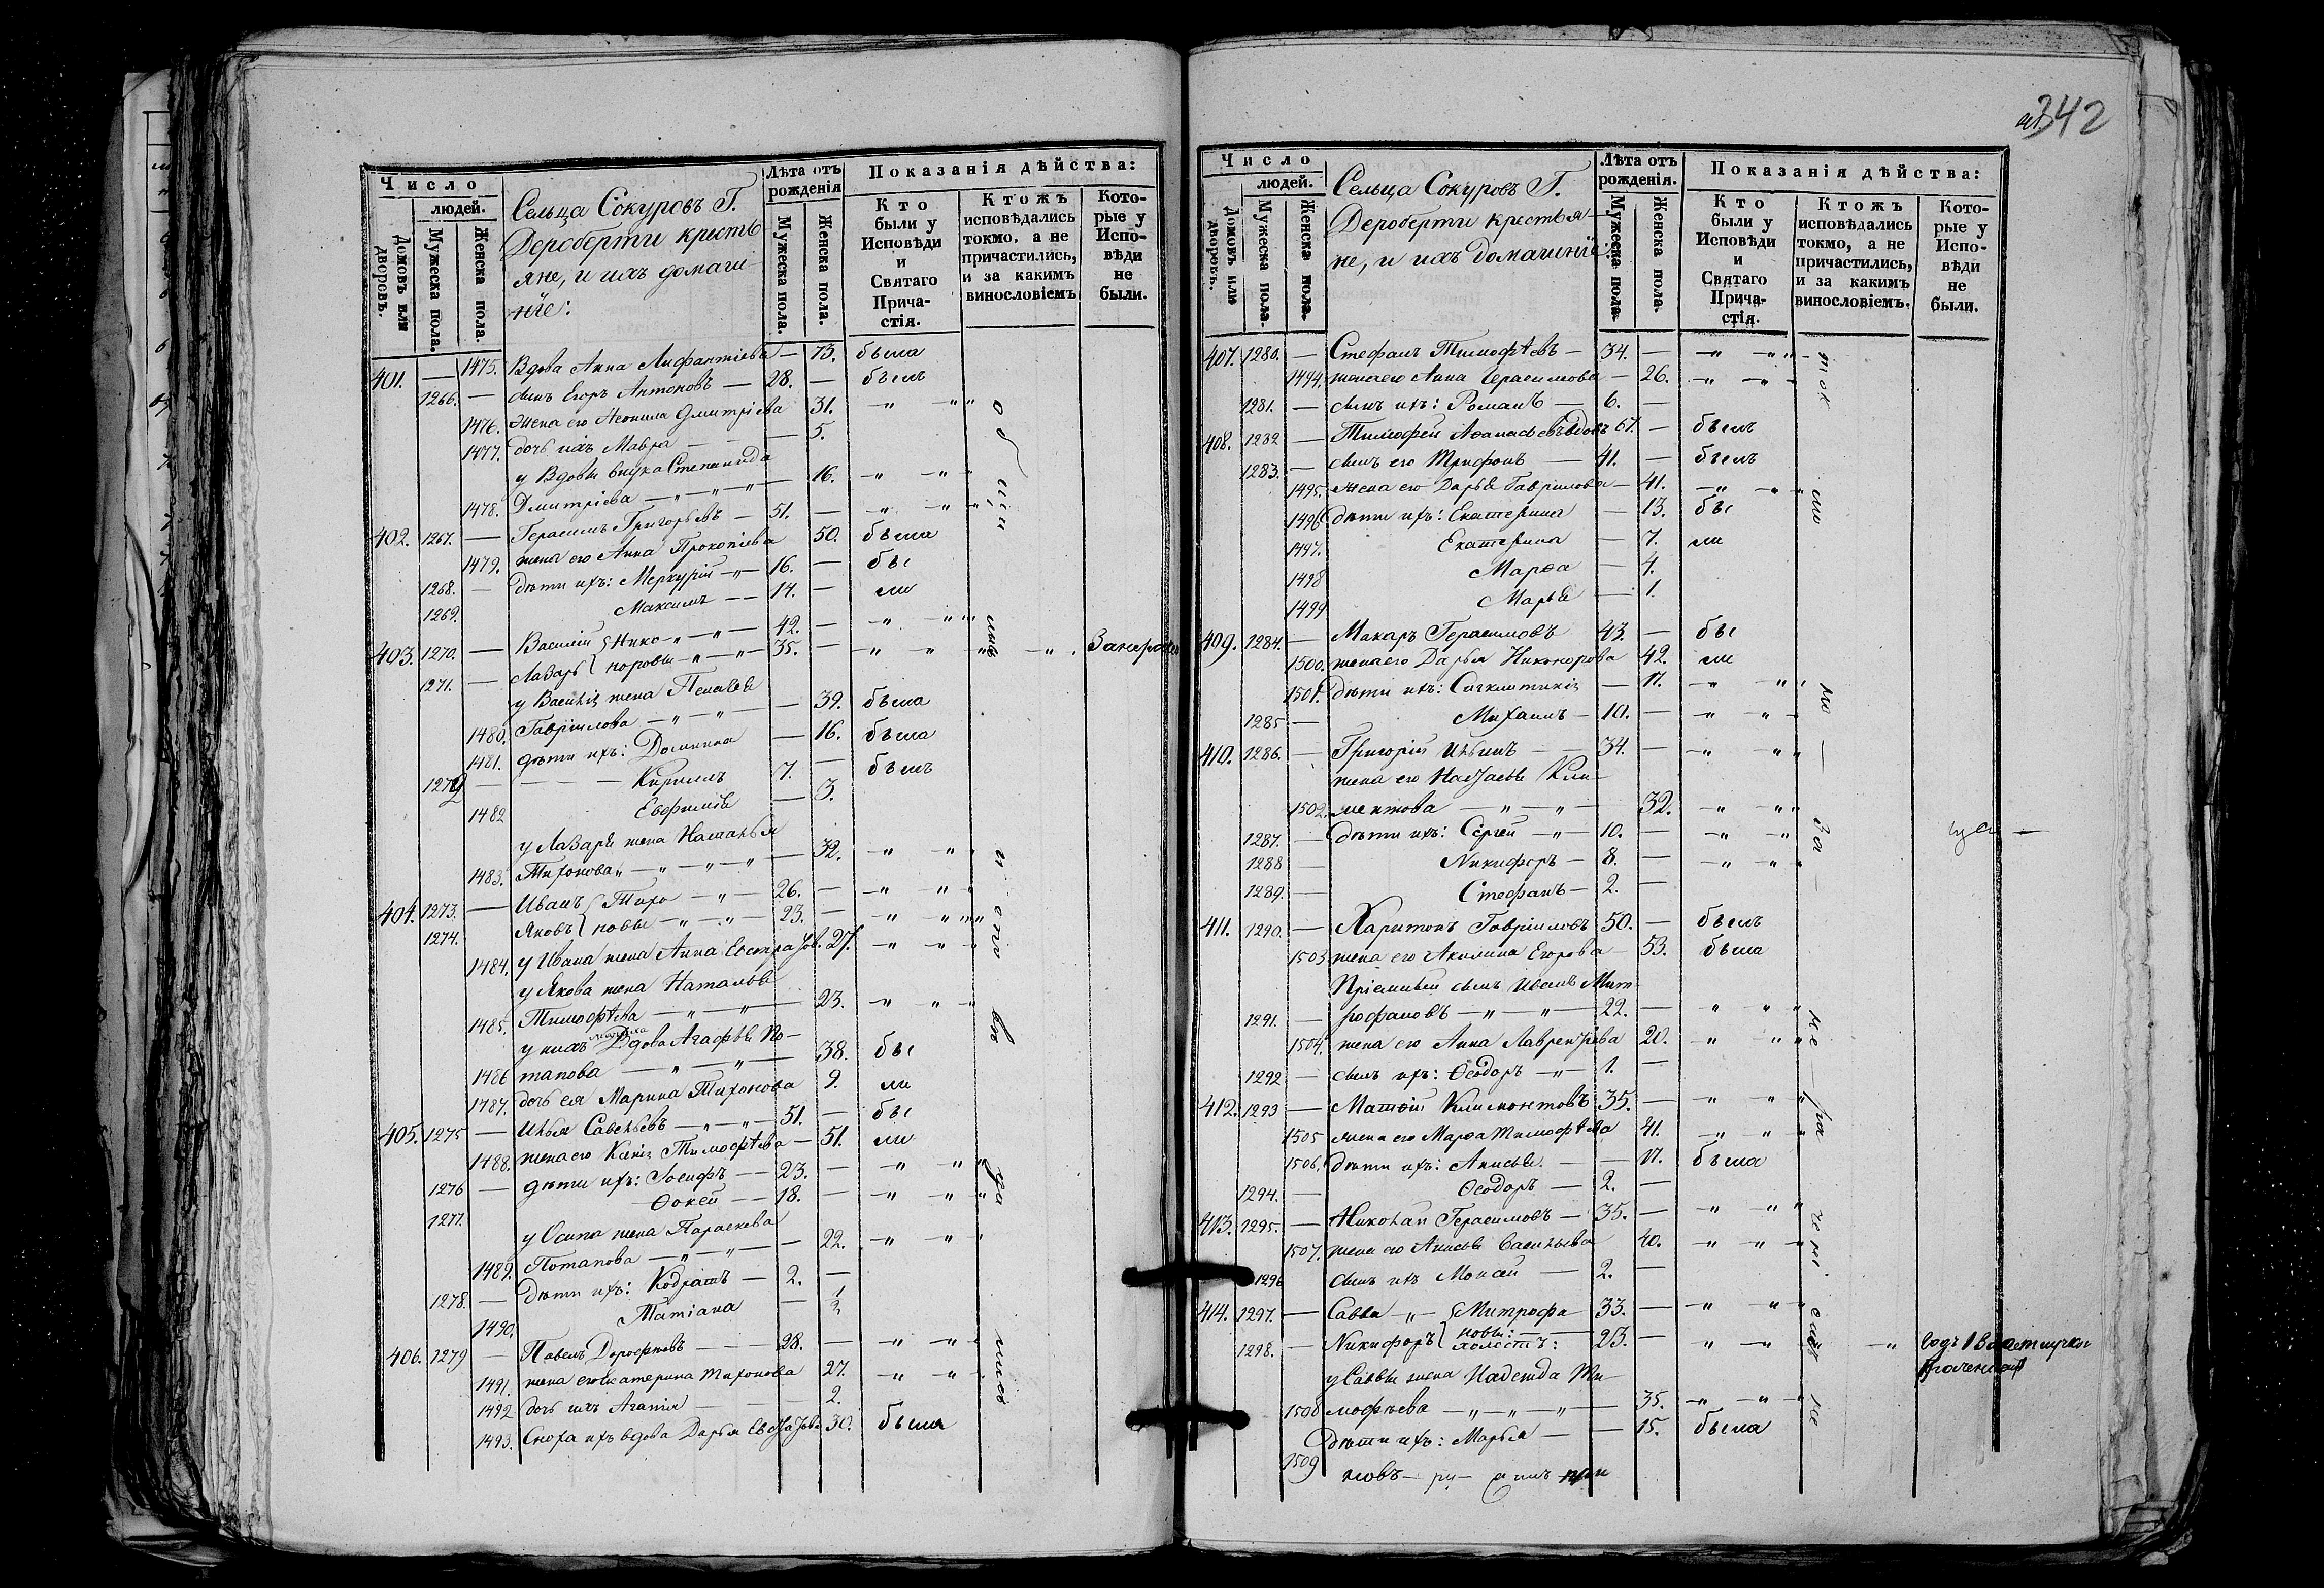 Число
людей.
Домовъ или дворовъ.
Мужеска пола.
Женска пола.
Сельца Сокуровъ Г.
Дероберти кресть
яне, и ихъ домаш-
ніе:
Лѣта отъ рожденія
Мужеска пола.
Женска пола.
Показанія дѣйства:
Кто были у Исповѣди и Святаго Прича-стія.
Ктожъ исповѣдались токмо, а не причастились, и за какимъ винословіемъ
Кото-рые у Испо-вѣди не были.
1475. Вдова Анна — 73. была
401. — 1266. — сынъ Егоръ Антоновъ — 28. — былъ
1476. Жена его Неонила Дмитріева 31. — " — "
1477. дочь ихъ Мавра — — 5.
у Вдовы внука Степанида
1478. Дмитріева — " — " — " — 16. — " — "
402. 1267. — Герасимъ Григорьевъ — 51. — " — "
1479. жена его Анна Прокопіева 50. была
1268. — дѣти ихъ: Меркурій — " — 16. — бы
1269. Максимъ — — 14. — ли
403. 1270. — Василій { Нико — " — " — 42. — " — "
1271. — Лазарь { норовы — " — " — 35. — " — "
у Василія жена Пелагея
1480. Гавріилова — " — " — — 39. была
1481. дѣти ихъ: Домника — 16. была
1272 — — — Кириллъ 7. — былъ
1482 Евфимія — 3.
у Лазаря жена Наталья
1483. Тихонова — " — " — " — 32. — " — "
404. 1273. — Иванъ { Тихо — " — 26. — " — "
1274. Яковъ { новы — " — " — 23. — " — "
1484. у Ивана жена Анна 27. — " — "
у Якова жена Наталья
1485. Тимофѣева — " — " — 23. — " — "
у нихъ Вдова Агафья По-
1486 тапова — " — " — 38. бы
1487. дочь ея Марина Тихонова 9. ли
405. 1275 — Илья Савельевъ — " — " — 51. — бы
1488. жена его Ксенія Тимофѣева — 51. ли
1276 — дѣти ихъ: Іосифъ — — 23. — " — "
1277. Фокей — — 18. — " — "
у Осипа жена Параскева
1489. Потапова — " — " — — 22. — " — "
1278. — Дѣти ихъ: Кодратъ — 2. —
1490. Татіана —
406. 1279 — Павелъ Дорофѣевъ — — — 28. — " — "
1491. жена его Екатерина Тихонова 27. — " — "
1492 дочь ихъ Агапія — — 2.
1493. Сноха ихъ вдова Дарья 30. была
342
Число
людей.
Домовъ или дворовъ.
Мужеска пола.
Женска пола.
Сельца Сокуровъ Г.
Дероберти крестья-
не, и ихъ домашніе:
Лѣта отъ рожденія.
Мужеска пола
Женска пола.
Показанія дѣйства:
Кто были у Исповѣди и Святаго Прича-стія.
Ктожъ исповѣдались токмо, а не причастились, и за какимъ винословіемъ.
Кото-рые у Испо-вѣди не были.
407. 1280. — Стефанъ Тимофѣевъ — 34. — " — "
1494. жена его Анна Герасимова — 26. — " — "
1281. — сынъ ихъ: Романъ — 6. —
408. 1282 — Тимофей Аѳанасьевъ вдовъ 67. — былъ
1283. — сынъ его Трифонъ — 41. — былъ
1495. жена его Дарья Гаврилова — 41. — " — "
1496 дѣти ихъ: Екатерина — 13. бы
1497. Екатерина — 7. ли
1498 Марѳа — 4.
1499 Марья — 1.
409. 1284. — Макаръ Герасимовъ 43. — бы
1500. жена его Дарья Никонорова 42. ли
1501. дѣти ихъ: Синклитикія — 11. — " — "
1285 — Михаилъ — 10. — " — "
410. 1286. — Григорій Ильинъ — 34. — " — "
жена его Настасья Кли-
1502. ментова — " — " — 32. — " — "
1287. — дѣти ихъ: Сергей — " — 10. — " — "
1288 — Никифоръ — 8. — " — "
1289. — Стефанъ — 2. —
411. 1290. — Харитонъ Гавріиловъ 50. — былъ
1503 жена его Акилина Егорова — 53. была
Пріемышъ сынъ Иванъ Мит-
1291. — рофановъ — " — " — 22. — " — "
1504. жена его Анна Лаврентьева 20. — " — "
1292 — сынъ ихъ: Ѳеодоръ — " — 1. —
412. 1293 — Матѳій Климонтовъ 35. — " — "
1505 жена его Марѳа Тимофѣева 41. — " — "
1506. дѣти ихъ: Анисья. — — 17. была
1294. — Ѳеодоръ — 2. —
413. 1295. — Николай Герасимовъ — 35. — " — "
1507. жена его Анисья Васильева 40. — " — "
1296 сынъ ихъ Мокей — 2. —
414. 1297. — Савва — " — { Митрофа — 33. — " — "
1298. — Никифоръ { новы: — холостъ: 23. — " — "
у Саввы жена Надежда Ти-
1508 мофѣева — " — " — " — 35. — " — "
1509 Дѣти ихъ: Марья — — 15. была